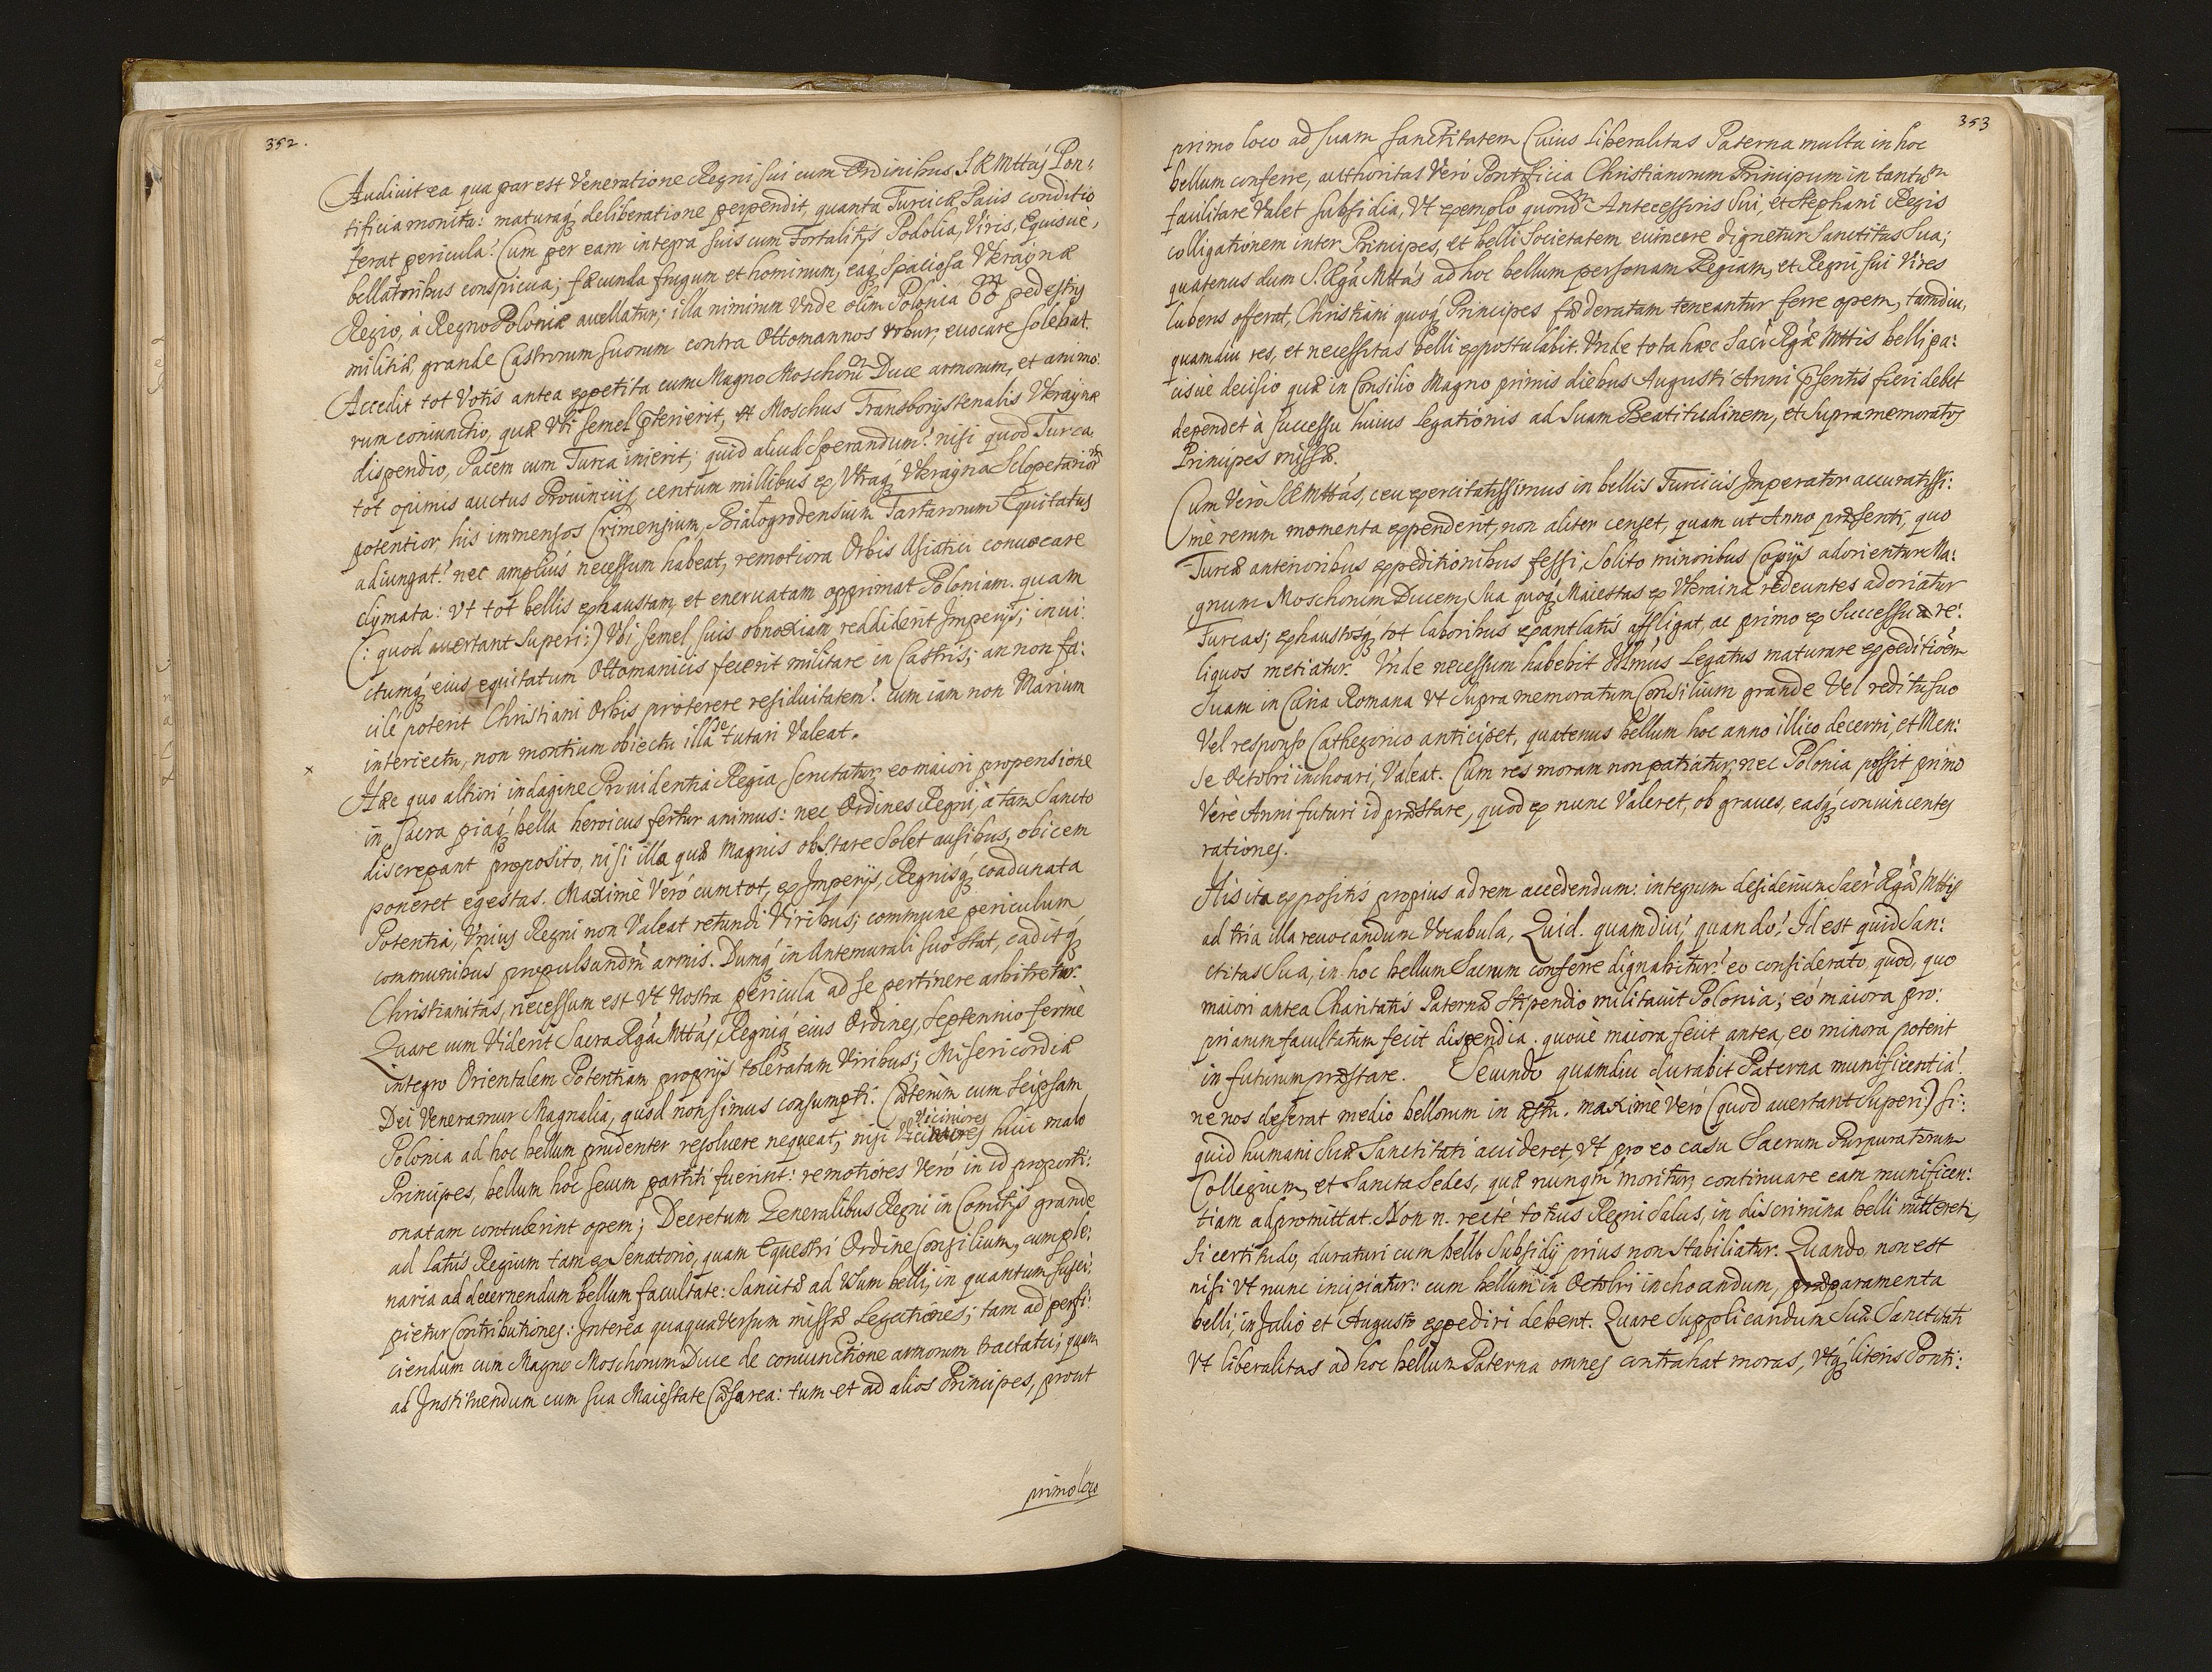 352.
Audiuit ea qua par est Veneratione Regni sui cum Ordinibus S.R.Mttas Pon:
tificia monita: maturaq; deliberatione perpendit, quanta Turcicæ Pacis conditio
ferat pericula! Cum per eam integra suis cum Fortalitijs Podolia, Viris, Equisuè,
bellatoribus conspicua; fæcunda frugum et hominum, eaq; spatiosa Vkrainæ
Regio, à Regno Poloniæ auellatur; illa nimirum Vnde olim Polonia pedestris
militiæ, grande Castrorum suorum contra Ottomannos robur, euocare solebat.
Accedit tot Votis antea expetita cum Magno Moschorũ Duce armorum, et animo:
rum coniunctio, quæ Vti semel pterierit, et Moschus Transborijstenalis Vkrainæ
dispendio, Pacem cum Turca inierit; quid aliud sperandum? nisi quod Turca
tot opimis auctus Prouincijs centum millibus ex Vtraq; Vkrayna Sclopetariorũ
potentior, his immensos Crimensium, Bialogrodensium Tartarorum Equitatus
adiungat! nec ampliús necessum habeat, remotiora Orbis Asiatici conuocare
clymata: Vt tot bellis exhaustam, et eneruatam opprimat Poloniam. quam
(: quod auertant Superi:) Vbi semel suis obnoxiam reddiderit Imperijs; inui:
ctumq; eius equitatum Ottomanicis fecerit militare in Castris; an non fa:
cilè poterit Christiani Orbis proterere residuitatem? cum iam non Marium
interiectu, non montium obiectu illa se tutari Valeat.
x
Hæc quo altiori indagine Prouidentia Regia scrutatur, eo maiori propensione
in Sacra piaq; bella heroicus fertur animus: nec Ordines Regni, à tam Sancto
discrepant proposito, nisi illa quæ magnis obstare solet ausibus, obicem
poneret egestas. Maximè Veró cum tot, ex Imperijs, Regnisq; coadunata
Potentia, Vnius Regni non Valeat retundi Viribus; commune periculum
communibus propulsandũ armis. Dumq; in Antemurali suo stat, caditq;
Christianitas, necessum est Vt Nostra pericula ad se pertinere arbitretur.
Quare cum Viderit Sacra Rga Mttas, Regniq; eius Ordines, Septennio fermè
integro Orientalem Potentiam proprijs toleratam Viribus; Misericordiæ
Dei Veneramur Magnalia, quod non simus consumpti. Cæterùm cum seipsam
Polonia ad hoc bellum prudenter resoluere nequeat; nisi Viciniores huic malo
Principes, bellum hoc secum partiti fuerint: remotiores Veró in id proporti:
onatam contulerint opem; Decretum Generalibus Regni in Comitijs grande
ad latus Regium tam ex Senatorio, quam Equestri Ordine Consilium, cum ple:
naria ad decernendum bellum facultate: Sancitæ ad Vsum belli, in quantum susci:
pietur Contributiones: Interea quaquaversum missæ Legationes; tam ad perfi:
ciendum cum Magno Moschorum Duce de coniunctione armorum tractatu; quam
ad Instituendum cum sua Maiestate Cæsarea: tum et ad alios Principes, prout
primo loco
353
primo loco ad suam Sanctitatem Cuius liberalitas Paterna multa in hoc
bellum conferre, authoritas Veró Pontificia Christianorum Principum in tantum
facilitare Valet subsidia, Vt exemplo quondm Antecessoris Sui, et Stephani Regis
colligationem inter Principes, et belli Societatem euincere dignetur Sanctitas Sua;
quatenus dum S. Rga Mttas ad hoc bellum personam Regiam, et Regni sui Vires
lubens offerat, Christiani quoq; Principes fœderatam teneantur ferre opem, tamdiu,
quamdiu res, et necessitas belli expostulabit. Vnde tota hæc Sacr Rgæ Mttis belli pa:
cisuè decisio quæ in Consilio Magno primis diebus Augusti Anni pśentis fieri debet
dependet à successu huius Legationis ad Suam Beatitudinem, et supramemoratos
Principes missæ.
Cum Verò S.R.Mttas, ceu exercitatissimus in bellis Turcicis Imperator accuratissi:
mè rerum momenta expenderit, non aliter censet, quam ut Anno præsenti, quo
Turcæ anterioribus expeditionibus fessi, solito minoribus Copijs adorientur Ma:
gnum Moschorum Ducem, Sua quoq; Maiestas ex Vkraina redeuntes adoriatur
Turcas; exhaustosq; tot laboribus exantlatis affligat, ac primo ex Successu re:
liquos metiatur. Vnde necessum habebit Illmus Legatus maturare expeditiõem
Suam in Curia Romana Vt supramemoratum Consilium grande Vel reditu suo
Vel responso Cathegorico anticipet, quatenus bellum hoc anno illico decerni, et Men:
se Octobri inchoari, Valeat. Cum res moram non patiatur, nec Polonia possit primo
Verè Anni futuri id præstare, quod ex nunc Valeret, ob graues, easq; conuincentes
rationes.
His ita expositis propius ad rem accedendum: integrum desiderium Sacr Rgæ Mttis
ad tria illa reuocandum Vocabula, Quid. quamdiu! quando! Id est quid San:
ctitas Sua, in hoc bellum Sacrum conferre dignabitur? eo considerato, quod, quo
maiori antea Charitatis Paternæ Stipendio militauit Polonia; eó maiora pro:
priarum facultatum fecit dispendia. quouè maiora fecit antea, eo minora poterit
in futurum præstare. Secundo quamdiu durabit Paterna munificentia?
ne nos deserat medio bellorum in æstu. maximè Veró (quod auertant Superi) si:
quid humani Suæ Sanctitati accideret, Vt pro eo casu Sacrum Purpuratorum
Collegium, et Sancta Sedes, quæ nunqm moritur, continuare eam munificen:
tiam adpromittat. Non n. rectè totius Regni Salus, in discrimina belli mitteret.
Si certitudo, duraturi cum bello Subsidij prius non Stabiliatur. Quando, non est
nisi Vt nunc incipiatur: cum bellum in Octobri inchoandum, præparamenta
belli, in Julio et Augusto expediri debent. Quare Supplicandum Suæ Sanctitati
Vt liberalitas ad hoc bellum Paterna omnes contrahat moras, Vtq; literis Ponti: